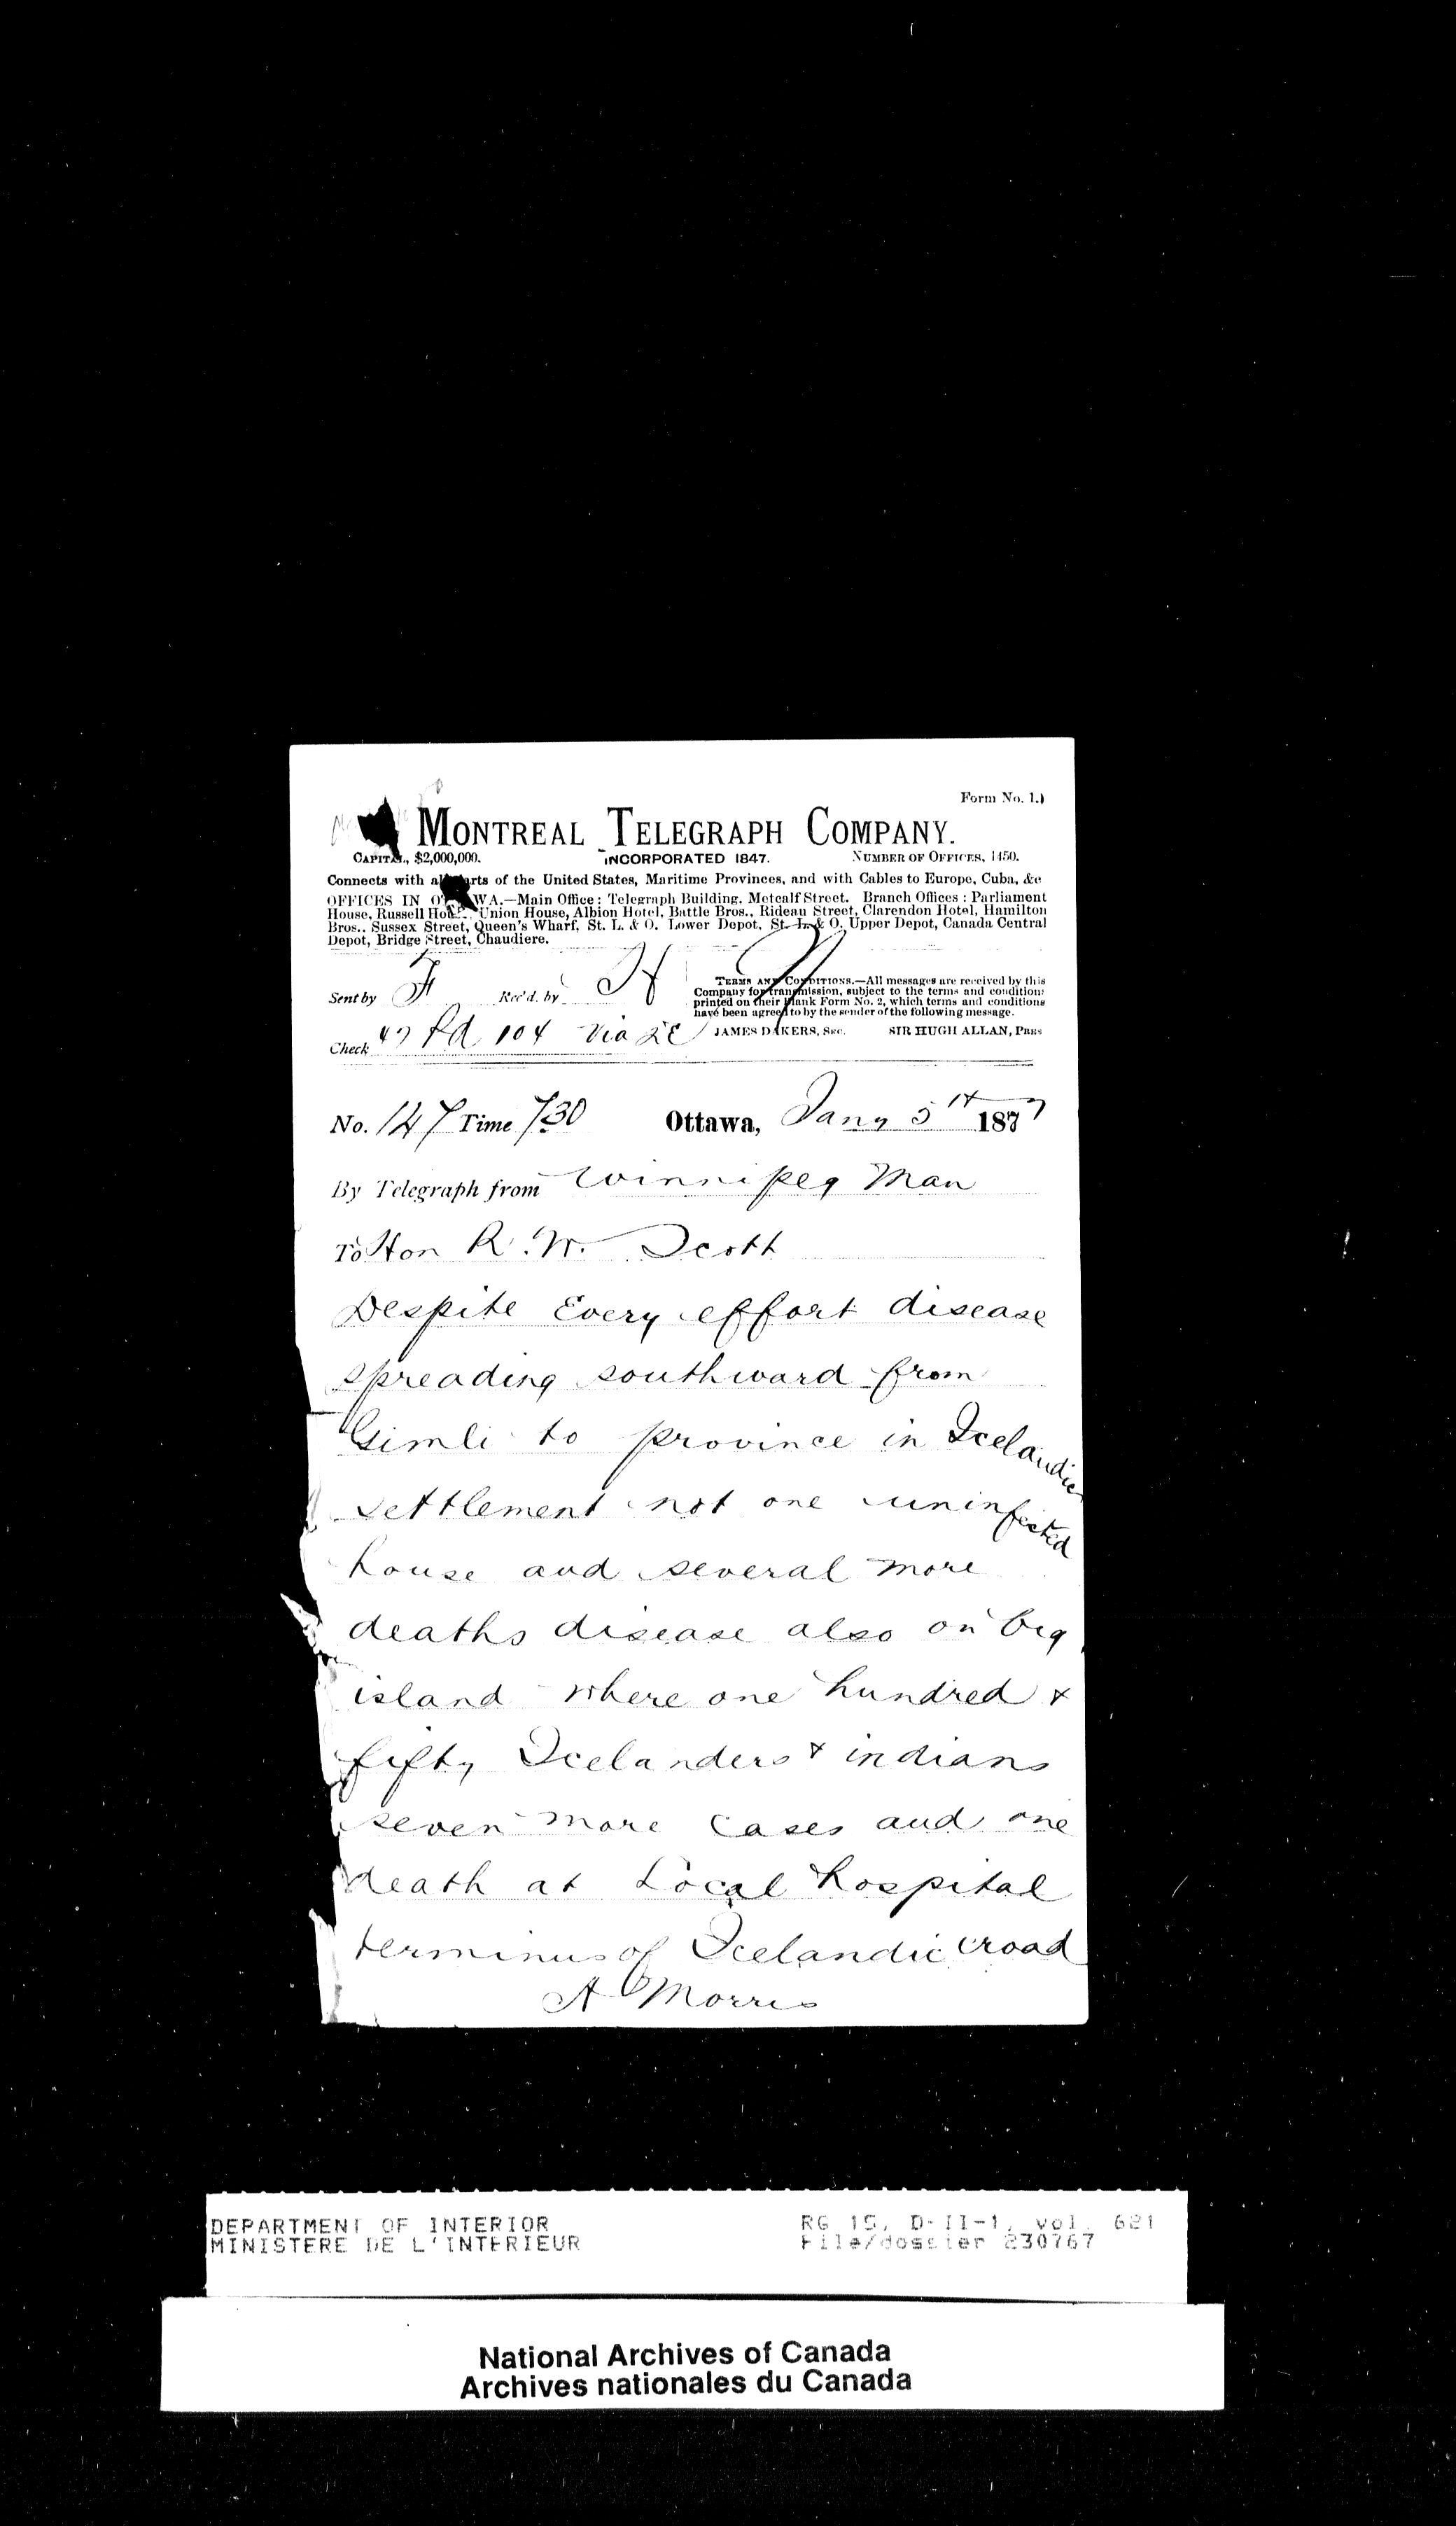 Form No. 1.
MONTREAL TELEGRAPH COMPANY.
CAPITAL, $2,000,000. INCORPORATED 1847. NUMBER OF OFFICES, 1450.
Connects with all parts of the United States, Maritime Provinces, and with Cables to Europe, Cuba, &c
OFFICES IN OTTAWA.—Main Office: Telegraph Building, Metcalf Street. Branch Offices: Parliament
House, Russell House, Union House, Albion Hotel, Battle Bros., Rideau Street, Clarendon Hotel, Hamilton
Bros., Sussex Street, Queen's Wharf, St. L. & O. Lower Depot, St. L. & O. Upper Depot, Canada Central
Depot, Bridge Street, Chaudiere.
TERMS AND CONDITIONS.—All messages are received by this
Company for transmission, subject to the terms and conditions
printed on their Blank Form No. 2, which terms and conditions
have been agreed to by the sender of the following message.
JAMES DAKERS, SEC. SIR HUGH ALLAN, PRES
Sent by F Rec'd. by H
Check 47 Pd 104 via
No. 147 Time 730 Ottawa, Jany 5th 1877
By Telegraph from Winnipeg Man
To Hon R. W. Scott
Despite Every effort disease
spreading southward from
Gimli to province in Icelandic
settlement not one uninfected
house and several more
deaths disease also on big
island where one hundred &
fifty Icelanders & indians
seven more cases and one
death at Local hospital
terminus of Icelandic road
A Morris
DEPARTMENT OF INTERIOR RG 15, D-II-1, vol. 621
MINISTERE DE L'INTERIEUR File/dossier 230767
National Archives of Canada
Archives nationales du Canada